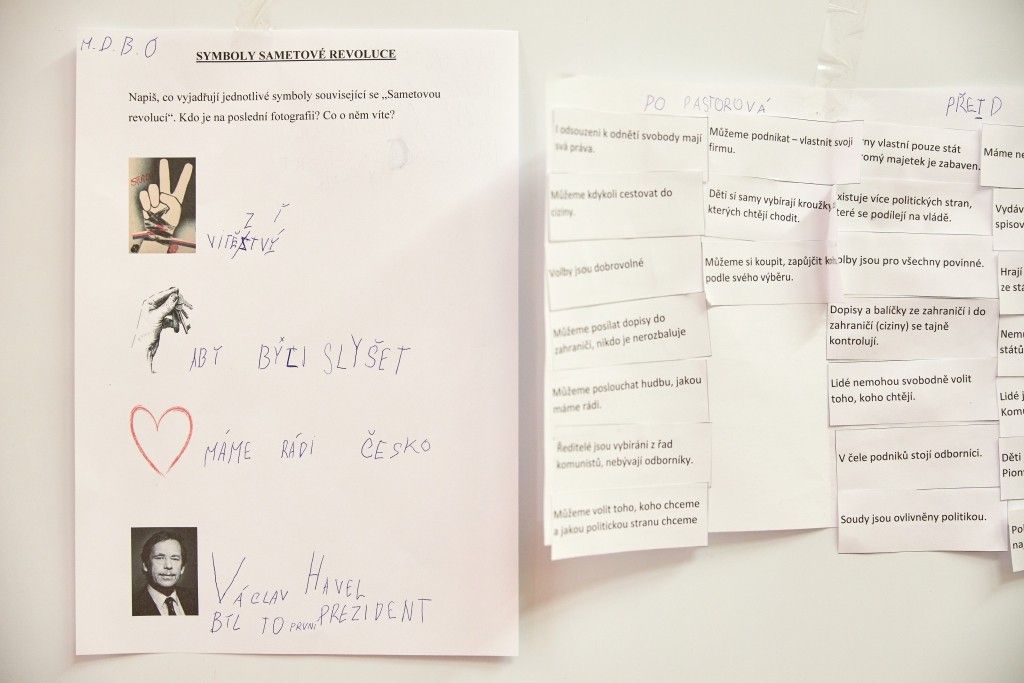 M.D.B.O
SYMBOLY SAMETOVÉ REVOLUCE
Napiš, co vyjadřují jednotlivé symboly související se „Sametovou
revolucí“. Kdo je na poslední fotografii? Co o něm víte?
Z Í
VITĚSTVÍ
ABY BYLI SLYŠET
MÁME RÁDI ČESKO
VÁCLAV HAVEL
BYL TO PRVNÍ PREZIDENT
PO PASTOROVÁ
I odsouzení k odnětí svobody mají
svá práva.
Můžeme kdykoli cestovat do
ciziny.
Volby jsou dobrovolné
Můžeme posílat dopisy do
zahraničí, nikdo je nerozbaluje
Můžeme poslouchat hudbu, jakou
máme rádi.
Ředitelé jsou vybíráni z řad
komunistů, nebývají odborníky.
Můžeme volit toho, koho chceme
a jakou politickou stranu chceme
Můžeme podnikat – vlastnit svoji
firmu.
Děti si samy vybírají kroužky
kterých chtějí chodit.
Můžeme si koupit, zapůjčit
podle svého výběru.
PŘET D
rny vlastní pouze stát
romý majetek je zabaven.
xistuje více politických stran,
teré se podílejí na vládě.
olby jsou pro všechny povinné.
Dopisy a balíčky ze zahraničí i do
zahraničí (ciziny) se tajně
kontrolují.
Lidé nemohou svobodně volit
toho, koho chtějí.
V čele podniků stojí odborníci.
Soudy jsou ovlivněny politikou.
Máme ne
Vydáv
spisov
Hrají
ze stá
Nemů
států
Lidé j
Komu
Děti
Pion
Po
na